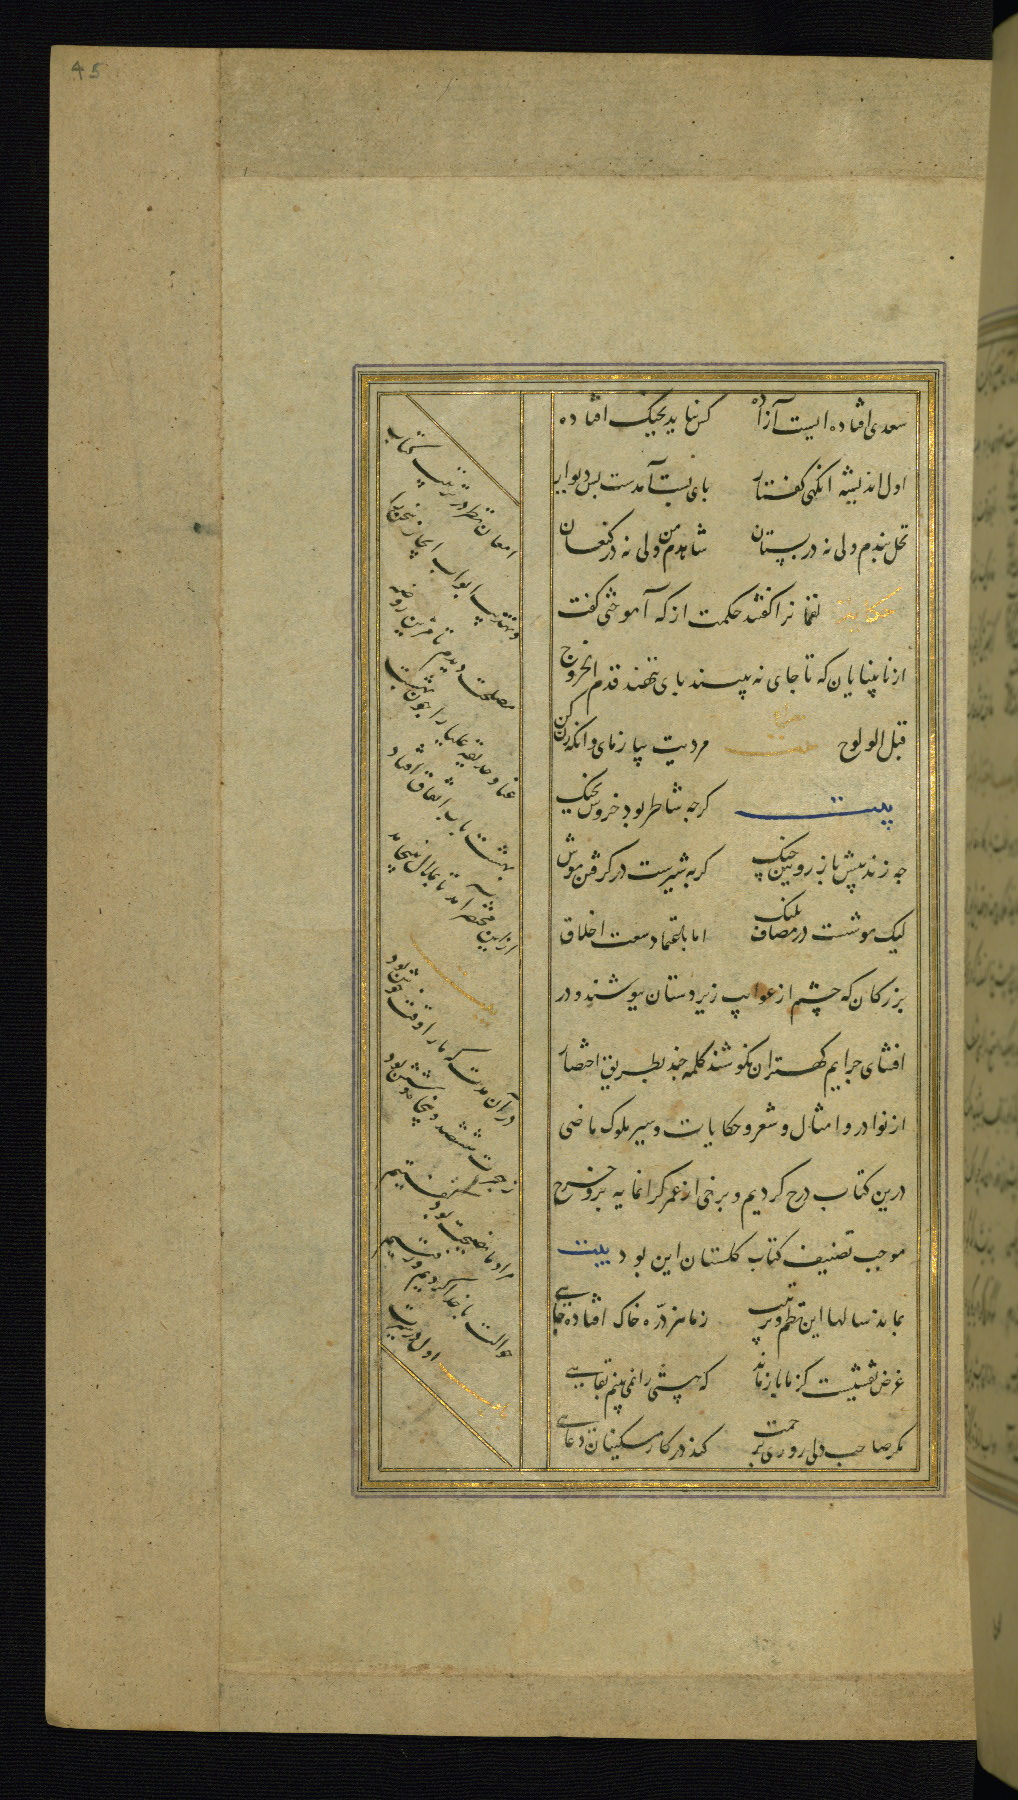 45
سعدی افتاده ایست آزاده کس نیاید بجنک افتاده
اول اندیشه انکهی کفتار پای بست آمدست پس دیوار
نخل بندم ولی نه در بستان شاهدم من ولی نه در کنعان
حکایت لقمانرا کفتند حکمت از که آموختی کفت
از نابینایان که تا جای نه بینند پای ننهند قدم الخروج
قبل الولوج مصراع مردیت بیازمای وانکه زن کن
بیت کرچه شاطر بود خروس بجنک
چه زند پیش باز رویین چنک کربه شیرست در کرفتن موش
لیک موشست در مصاف پلنک اما باعتماد سعت اخلاق
بزرکان که چشم از عوایب زیردستان بپوشند و در
افشای جرایم کهتران نکوشند کلمه چند بطریق اختصار
از نوادر و امثال و شعر و حکایات و سیر ملوک ماضی
درین کتاب درج کردیم و برخی از عمر کرانمایه برو خرج
موجب تصنیف کتاب کلستان این بود بیت
بماند سالها این نظم و ترتیب ز ما هر ذره خاک افتاده جایی
غرض نقشیست کز ما باز ماند که هستی را نمی بینم بقایی
مکر صاحب دلی روزی برحمت کند در کار مسکینان دعایی
امعان نظر در ترتیب کتاب
و تهذیب ابواب ایجاز سخن را
مصلحت دیدم تا مر این روضه
غنا و حدیقه علیا را چون بهشت
بهشت باب اتفاق افتاد
ازین مختصر آمد تا بملال نینجامد
بیت
در آن مدت که ما را وقت خوش بود
ز هجرت ششصد و پنجاه و شش بود
مراد ما نصیحت بود کفتیم
حوالت با خدا کردیم و رفتیم
باب اول در سیرت